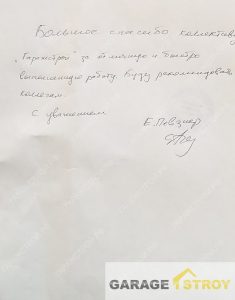 Большое спасибо коллективу
"Гаражстрой" за отличную и быстро
выполненную работу. Буду рекомендовать
коллегам.
С уважением
Е. Повзнер
GARAGE STROY